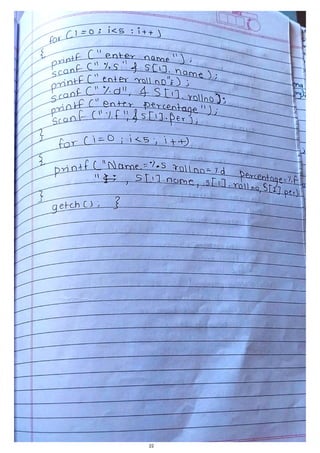 for (i=0; i<5; i++)
{
printf ("enter name");
scanf ("%s" & s[i].name);
printf ("enter roll no");
scanf ("%d", & s[i].rollno);
printf ("enter percentage");
scanf ("%f", & s[i].per);
}
for (i=0; i<5; i++)
{
printf ("Name=%s rollno=%d percentage=%f
", s[i].name, s[i].rollno, s[i].per)
}
getch(); }
22